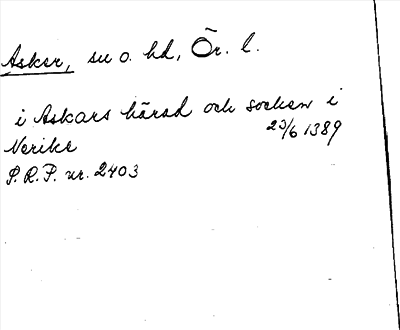 Asker, sn o. hd, Ör. l.
i Askars härad och socken i
Nerike 23/6 1389
S.R.P. nr. 2403